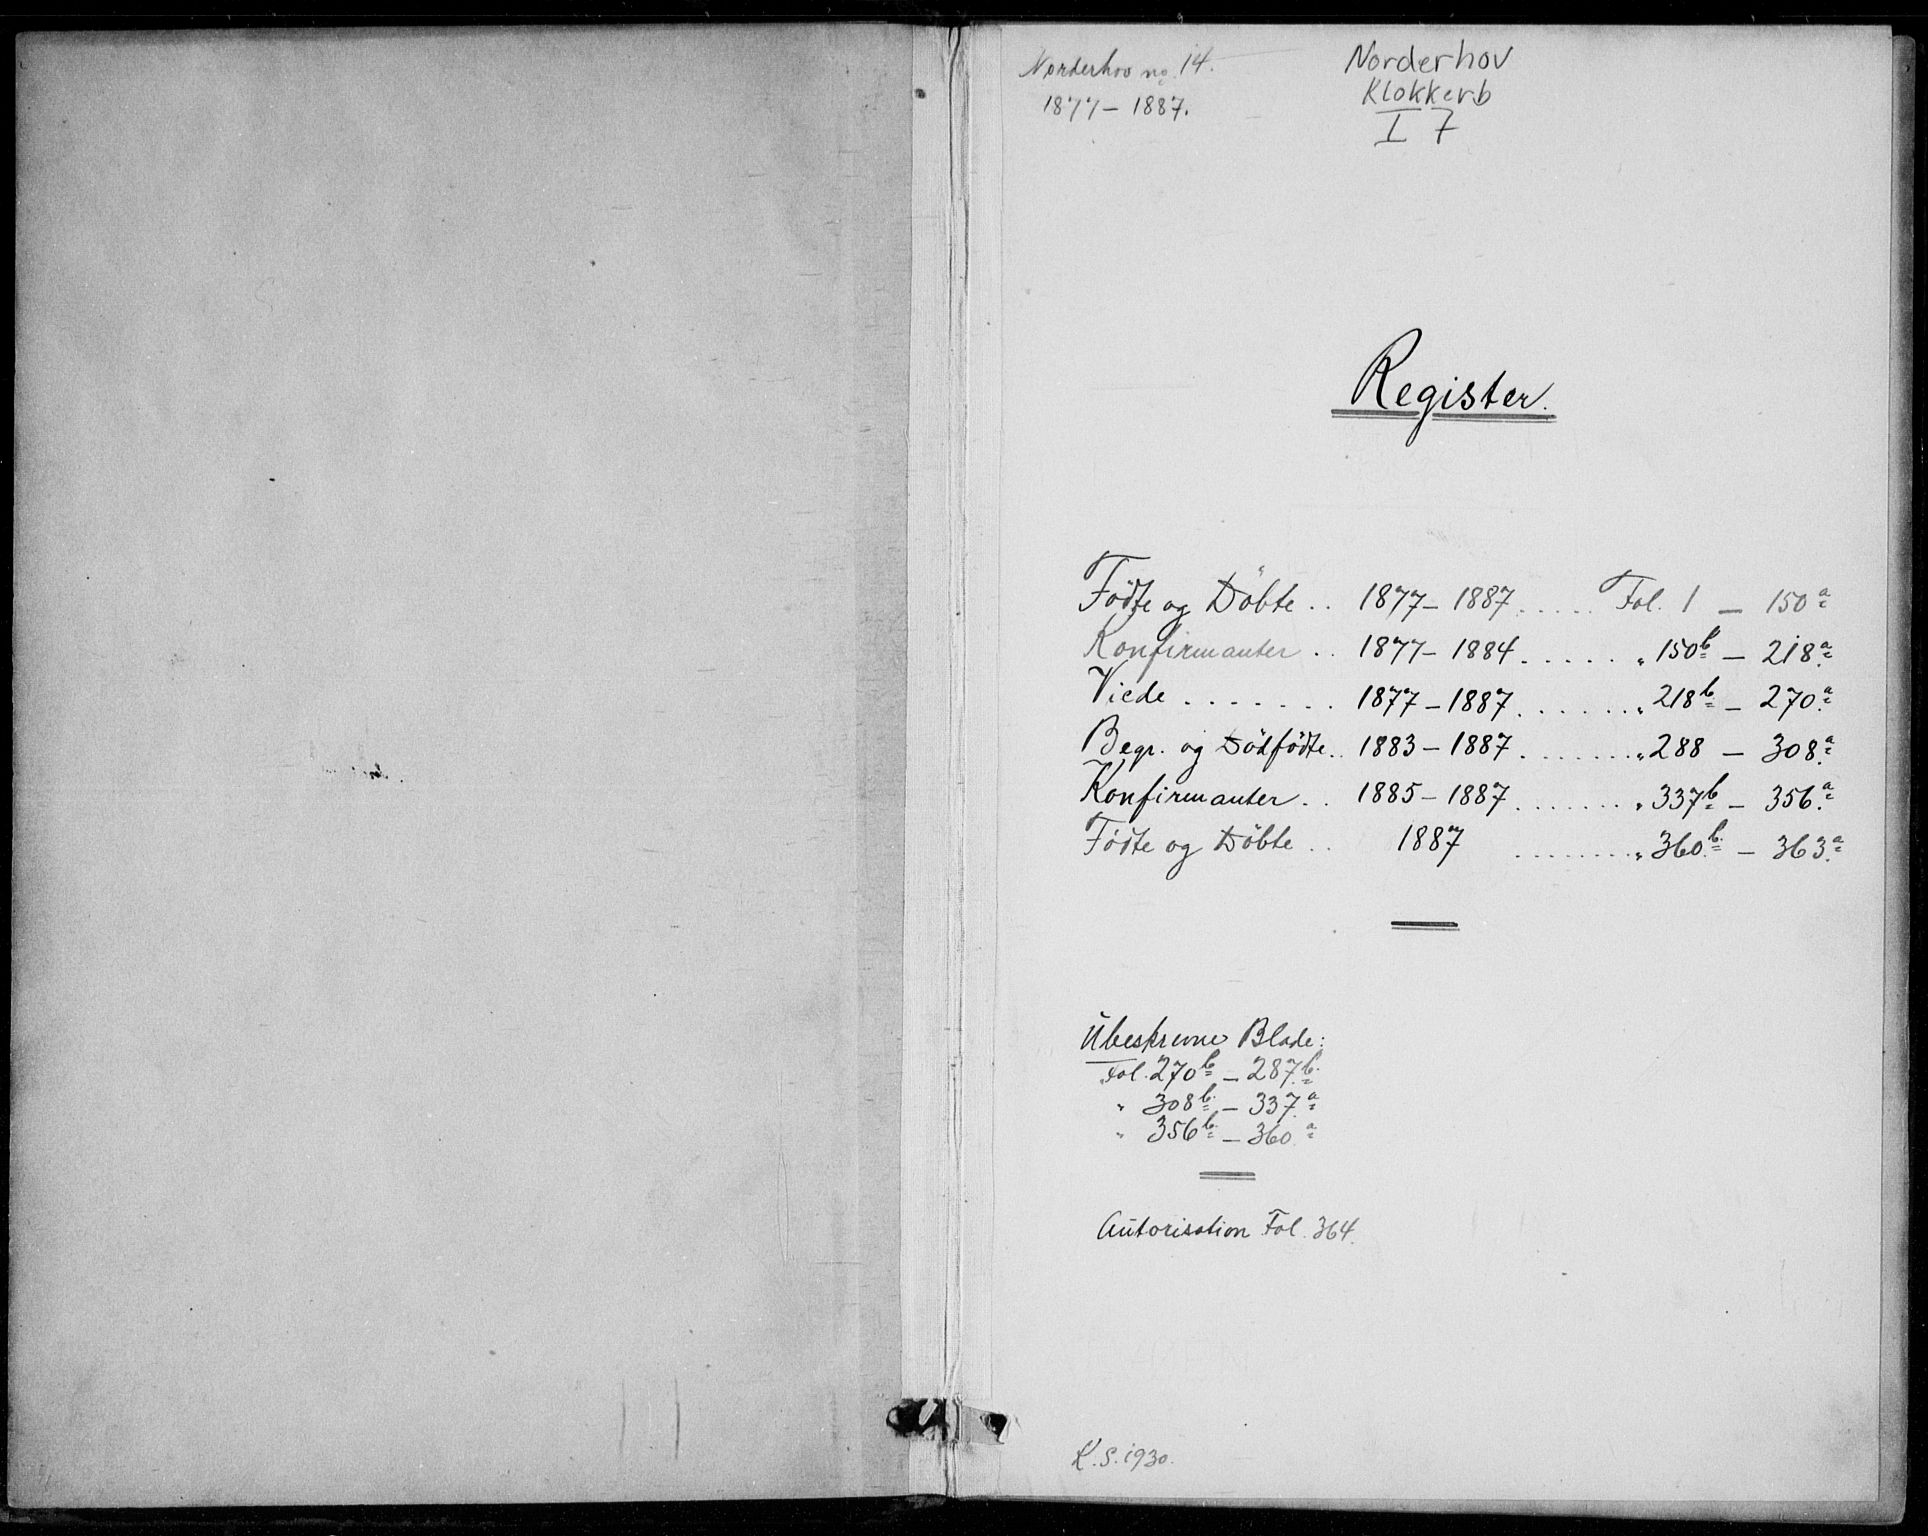 Norderhov no. 14.
1877 – 1887.
Norderhov
Klokkerb
I 7
Register.
Födte og Döbte .. 1877 – 1887 ..... Fol. 1 – 150a
Konfirmanter .. 1877 – 1884 ...... " 150b – 218a
Viede ....... 1877 – 1887 ...... " 218b – 270a
Begr. og Dödfödte .. 1883 – 1887 ....... " 288 – 308a
Konfirmanter .. 1885 – 1887 ....... " 337b – 356a
Födte og Döbte .. 1887 ........ " 360b – 363a
Ubeskrevne Blade:
Fol. 270b – 287b
" 308b – 337a
" 356b – 360a
Autorisation Fol. 364.
K.S. 1930.